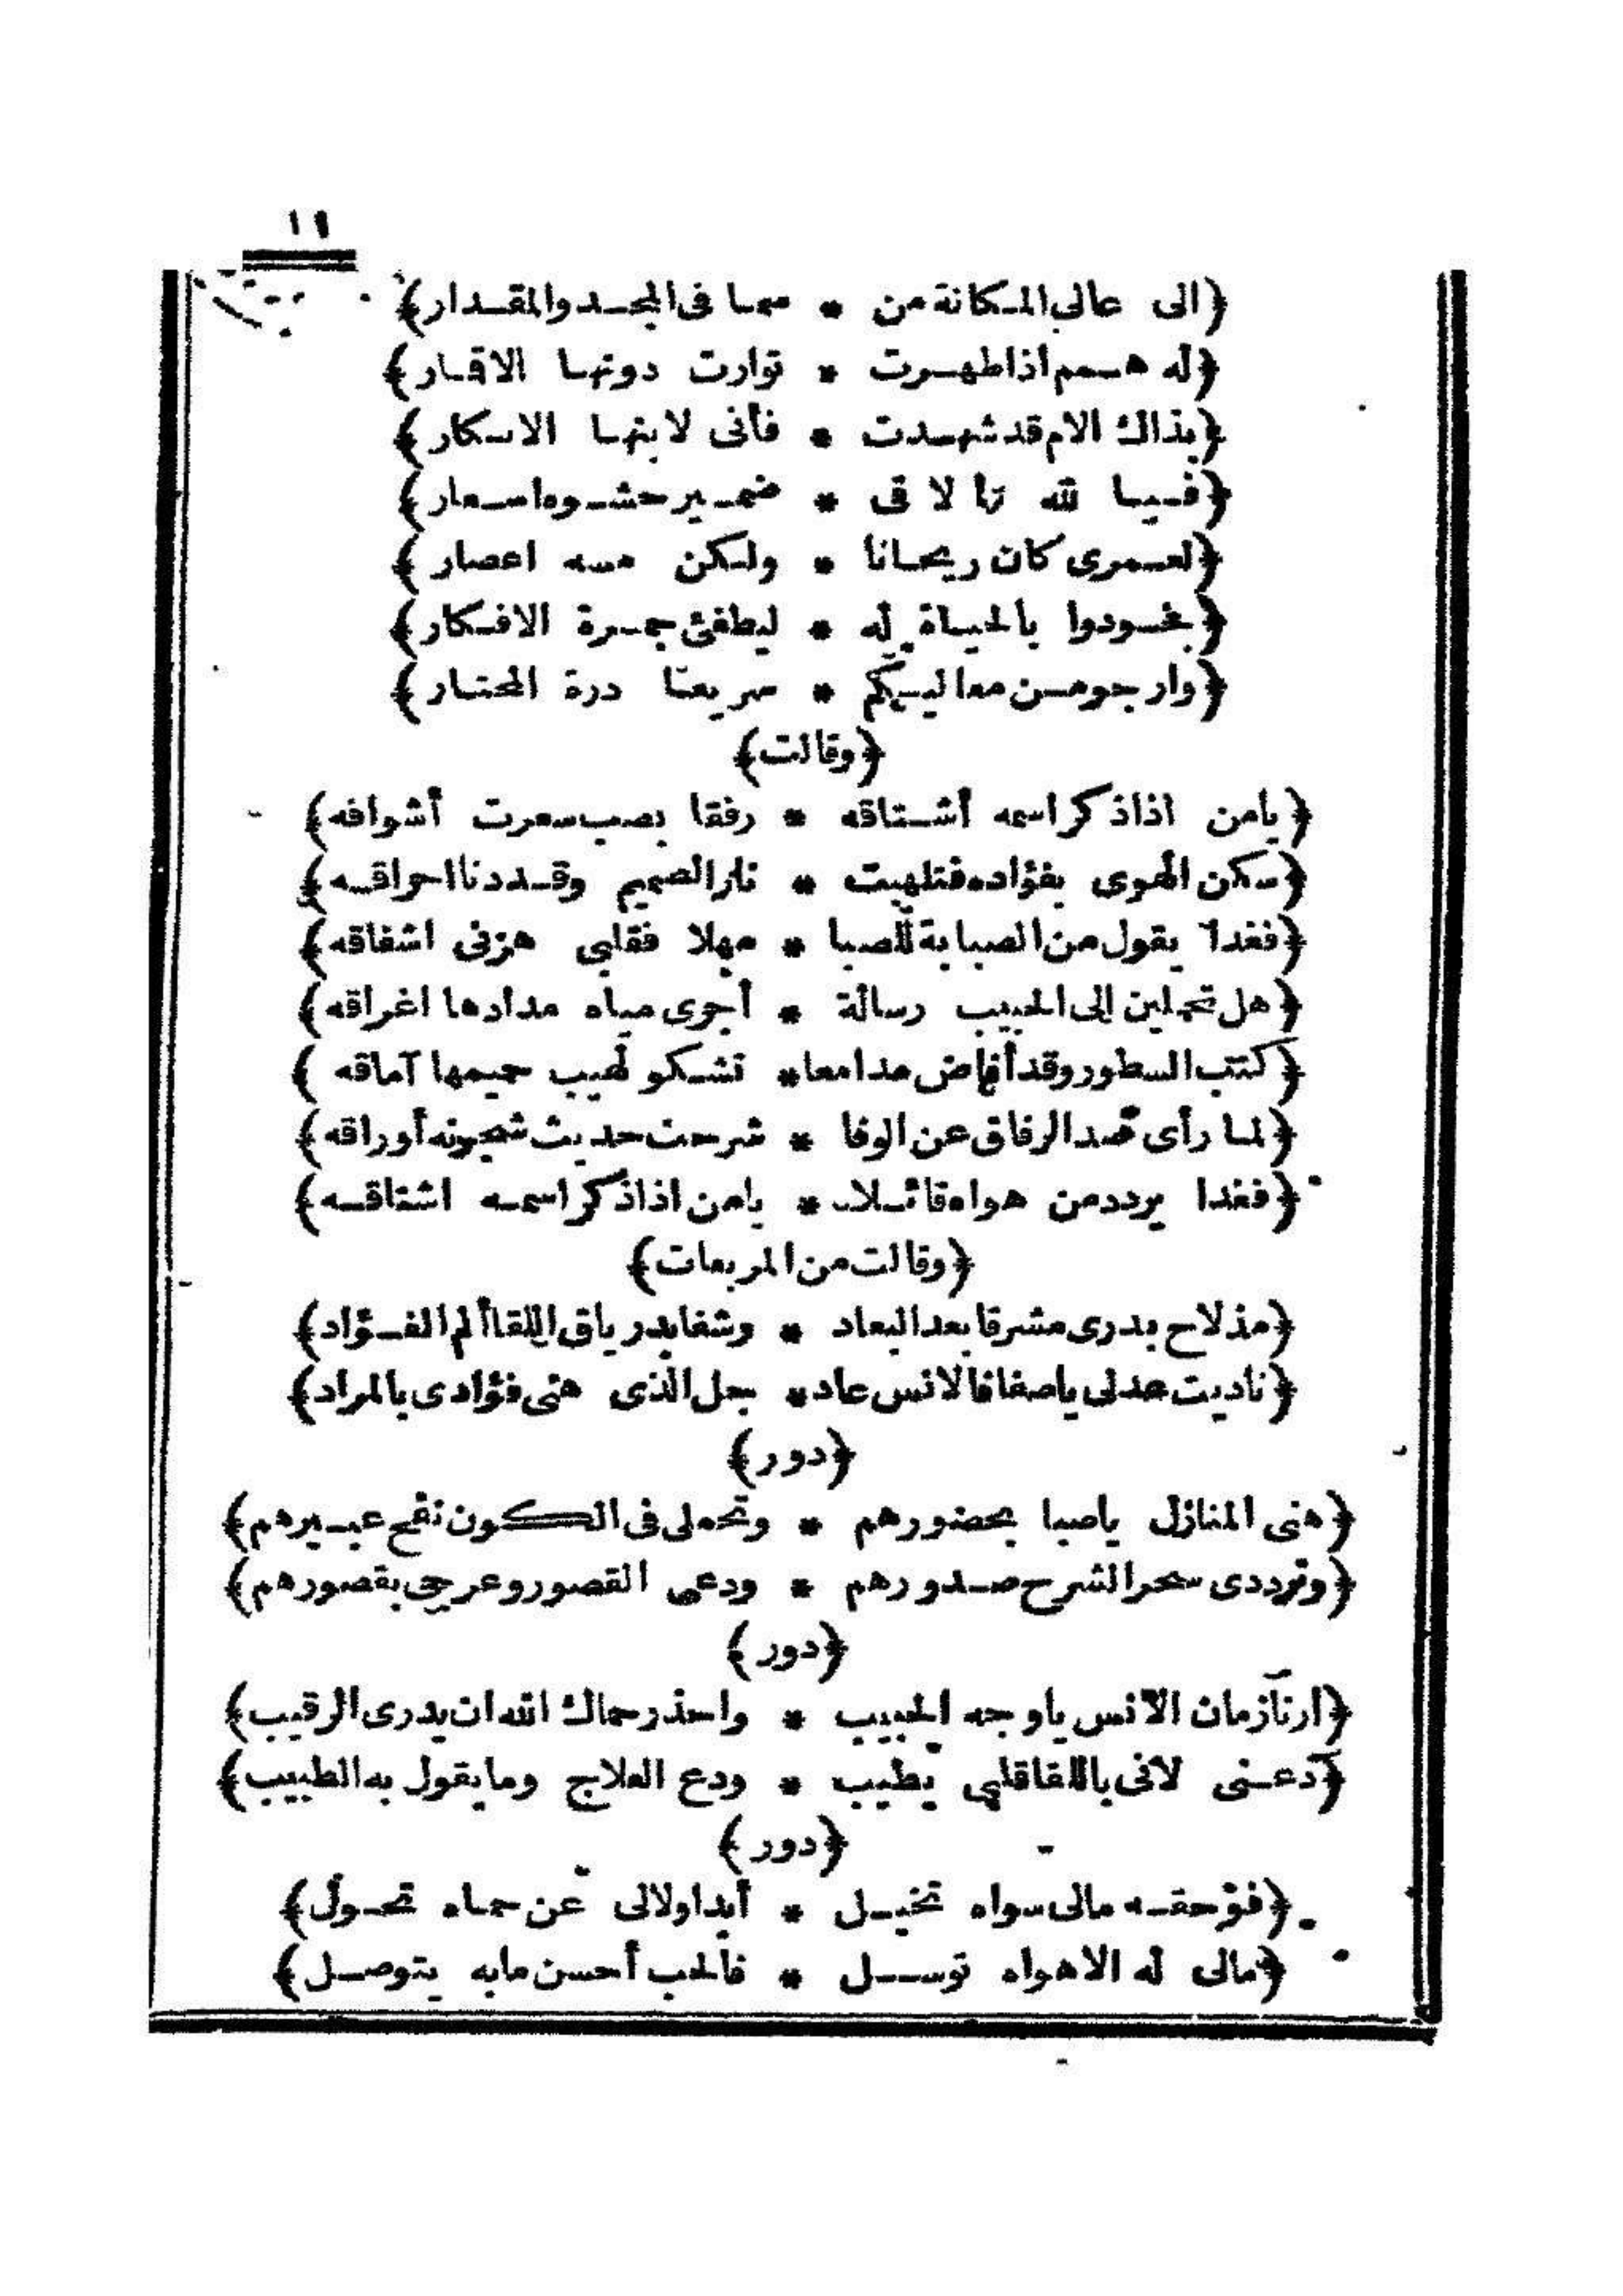 ١١
﴿الى عالى المكانة من * سما فى المجد والمقدار﴾
﴿له همم اذا ظهرت * توارت دونها الاقمار﴾
﴿بذاك الام قد شهدت * فأنى لابنها الانكار﴾
﴿فيا لله ما لاقى * ضمير حشوها سعار﴾
﴿لعمرى كان ريحانا * ولكن مسه اعصار﴾
﴿فجودوا بالحياة له * ليطفئ جمرة الافكار﴾
﴿وارجو من معاليكم * سريعا درة المحتار﴾
﴿وقالت﴾
﴿يا من اذا ذكر اسمه أشتاقه * رفقا بصب سعرت أشواقه﴾
﴿سكن الهوى بفؤاده فتلهبت * نار الصميم وقد دنا احراقه﴾
﴿فغدا يقول من الصبابة للصبا * مهلا فقلبى هزنى اشفاقه﴾
﴿هل تحملين الى الحبيب رسالة * أجرى مياه مدادها اغراقه﴾
﴿كتب السطور وقد أفاض مدامعا * تشكو لهيب حميمها آماقه﴾
﴿لما رأى صد الرفاق عن الوفا * شرحت حديث شجونه أوراقه﴾
﴿فغدا يردد من هواه قائلا * يا من اذا ذكر اسمه اشتاقه﴾
﴿وقالت من المربعات﴾
﴿مذ لاح بدرى مشرقا بعد البعاد * وشفا بدرياق اللقا ألم الفؤاد﴾
﴿ناديت عدلى يا صفا فالانس عاد * جل الذى هنى فؤادى بالمراد﴾
﴿دور﴾
﴿هنى المنازل يا صبا بحضورهم * وتحملى فى الكون نفح عبيرهم﴾
﴿وترددى سحرا لشرح صدورهم * ودعى القصور وعرجى بقصورهم﴾
﴿دور﴾
﴿ارنا زمان الانس يا وجه الحبيب * واحذر حماك الله ان يدرى الرقيب﴾
﴿دعنى لانى باللقا قلبى يطيب * ودع العلاج وما يقول به الطبيب﴾
﴿دور﴾
﴿فوحقه مالى سواه تخيل * أبدا ولا لى عن حماه تحول﴾
﴿مالى له الا هواه توسل * فالحب أحسن ما به يتوصل﴾